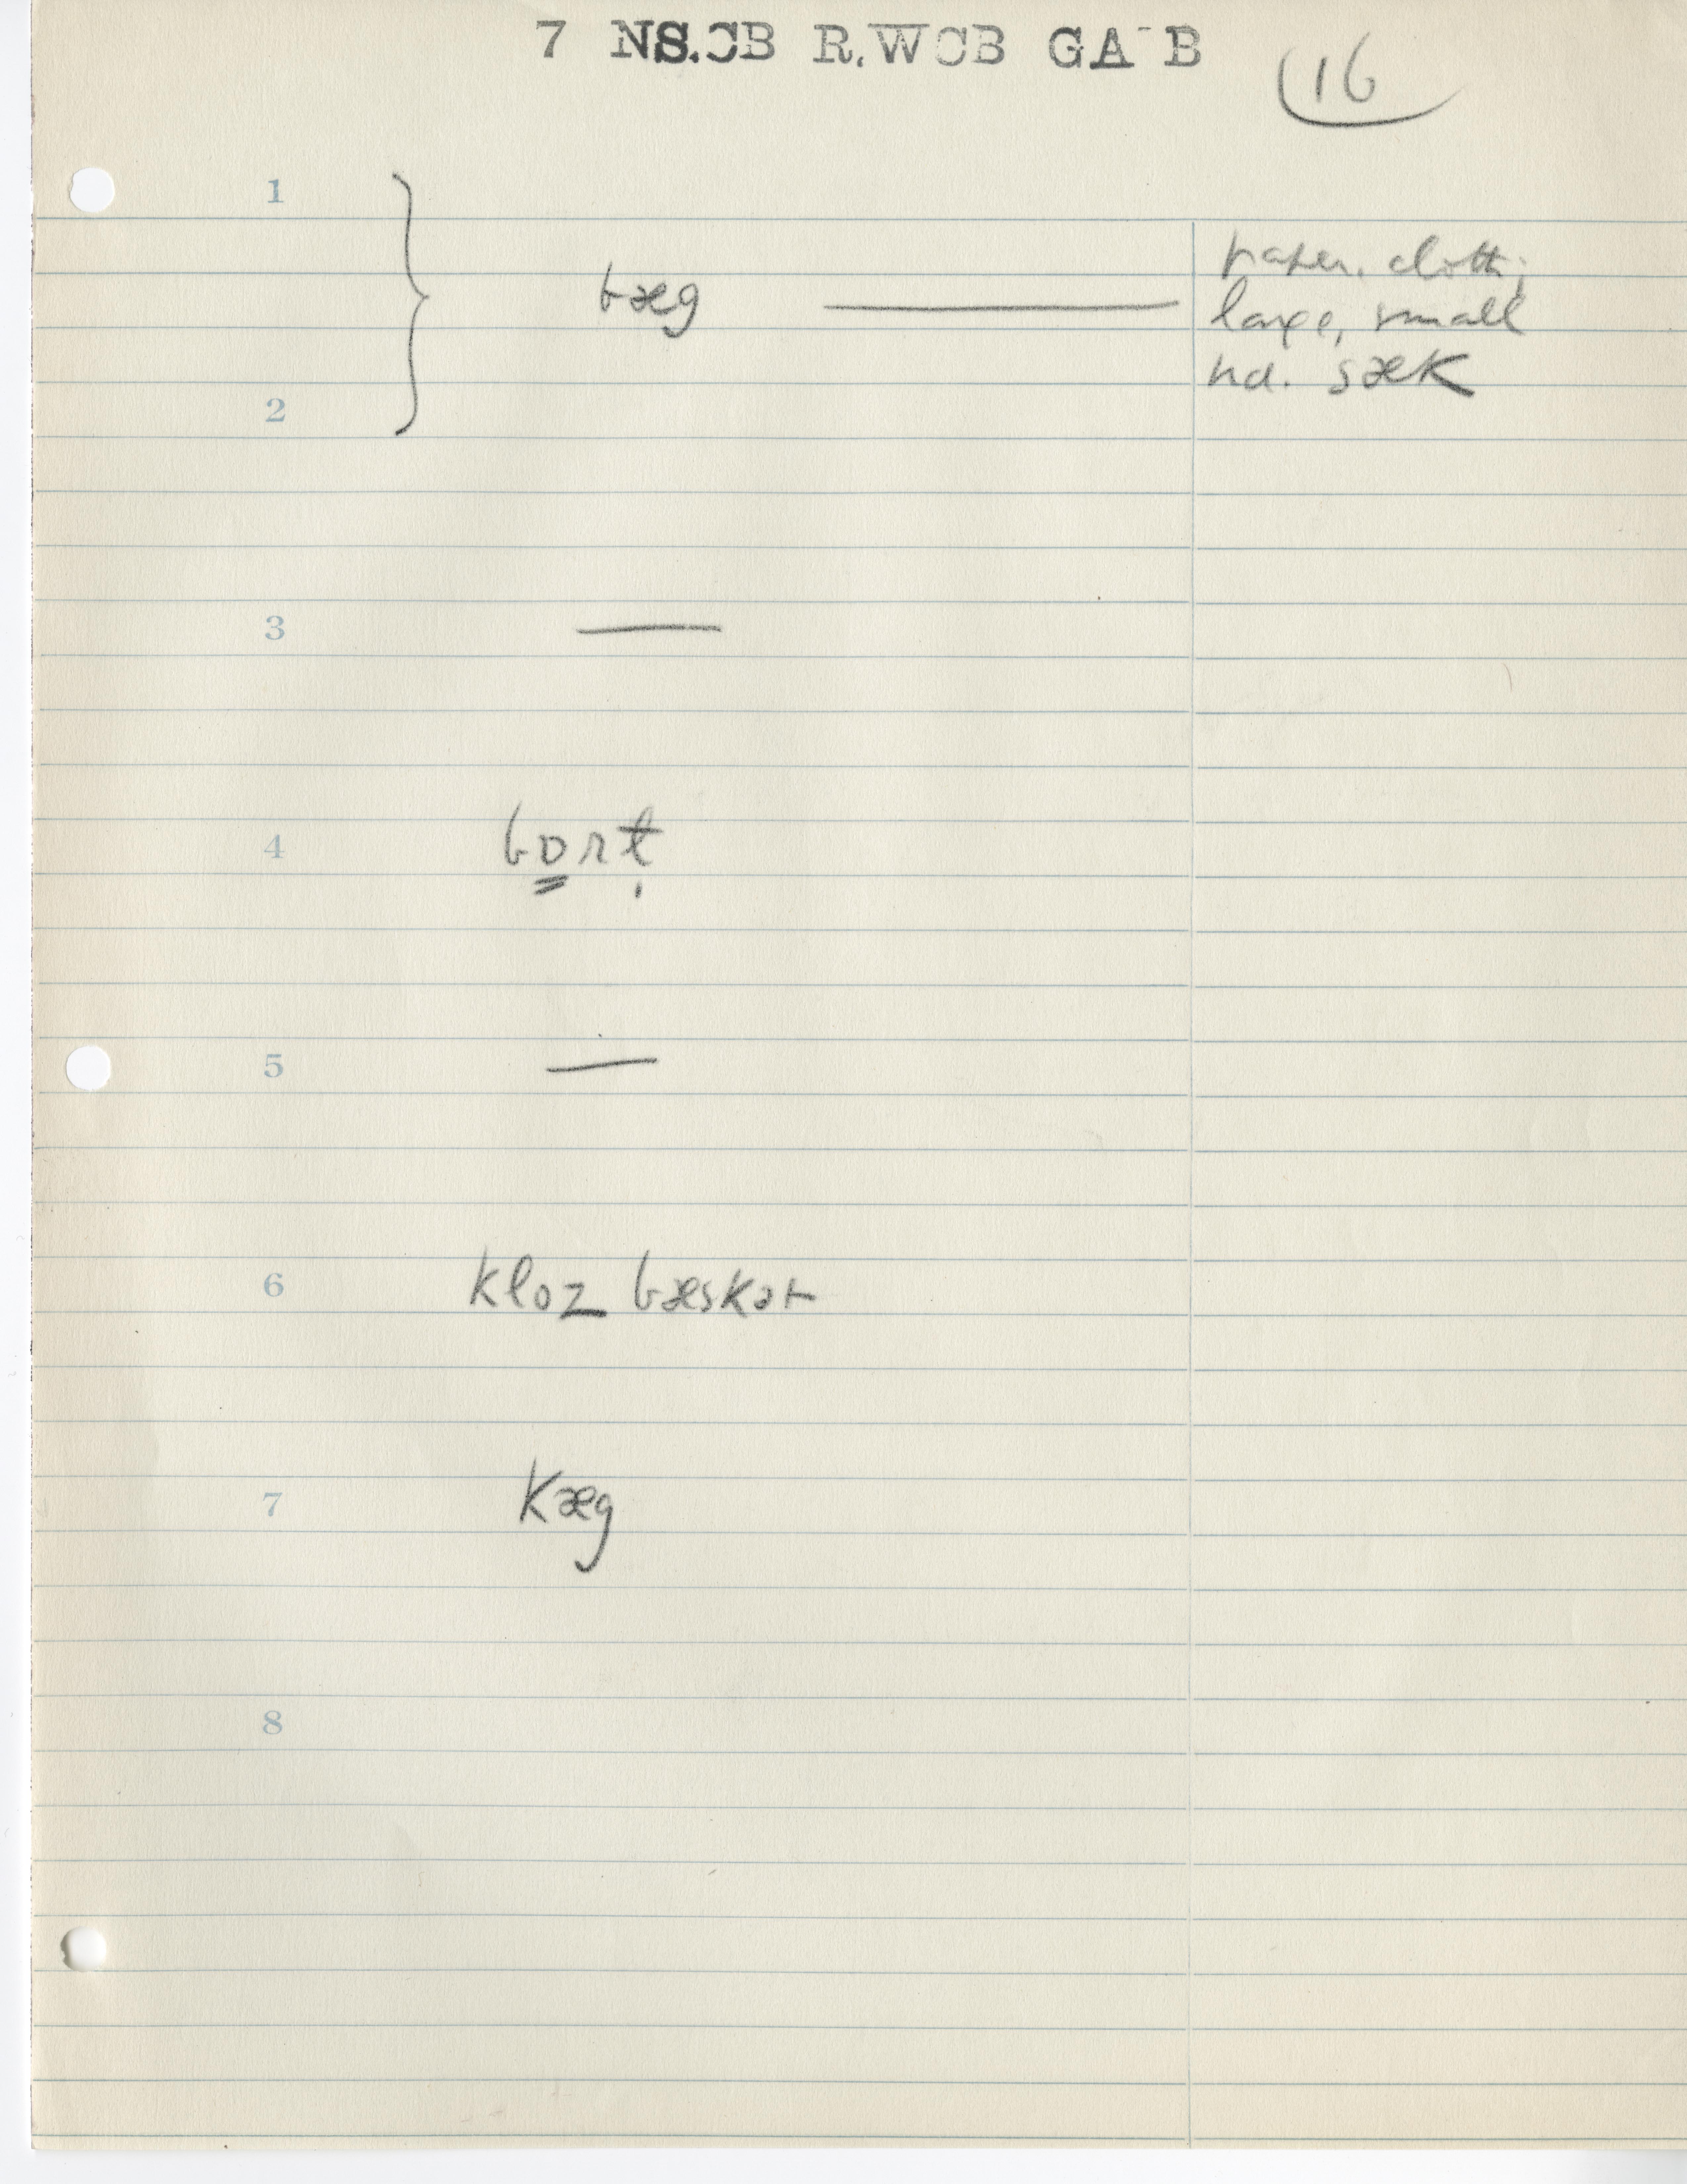 7 NS.CB R.WCB GA B
16
1
paper, cloth;
bæg
large, small
nd. sæk
2
3
4
5
6 kloz bæskət
7 kæg
8